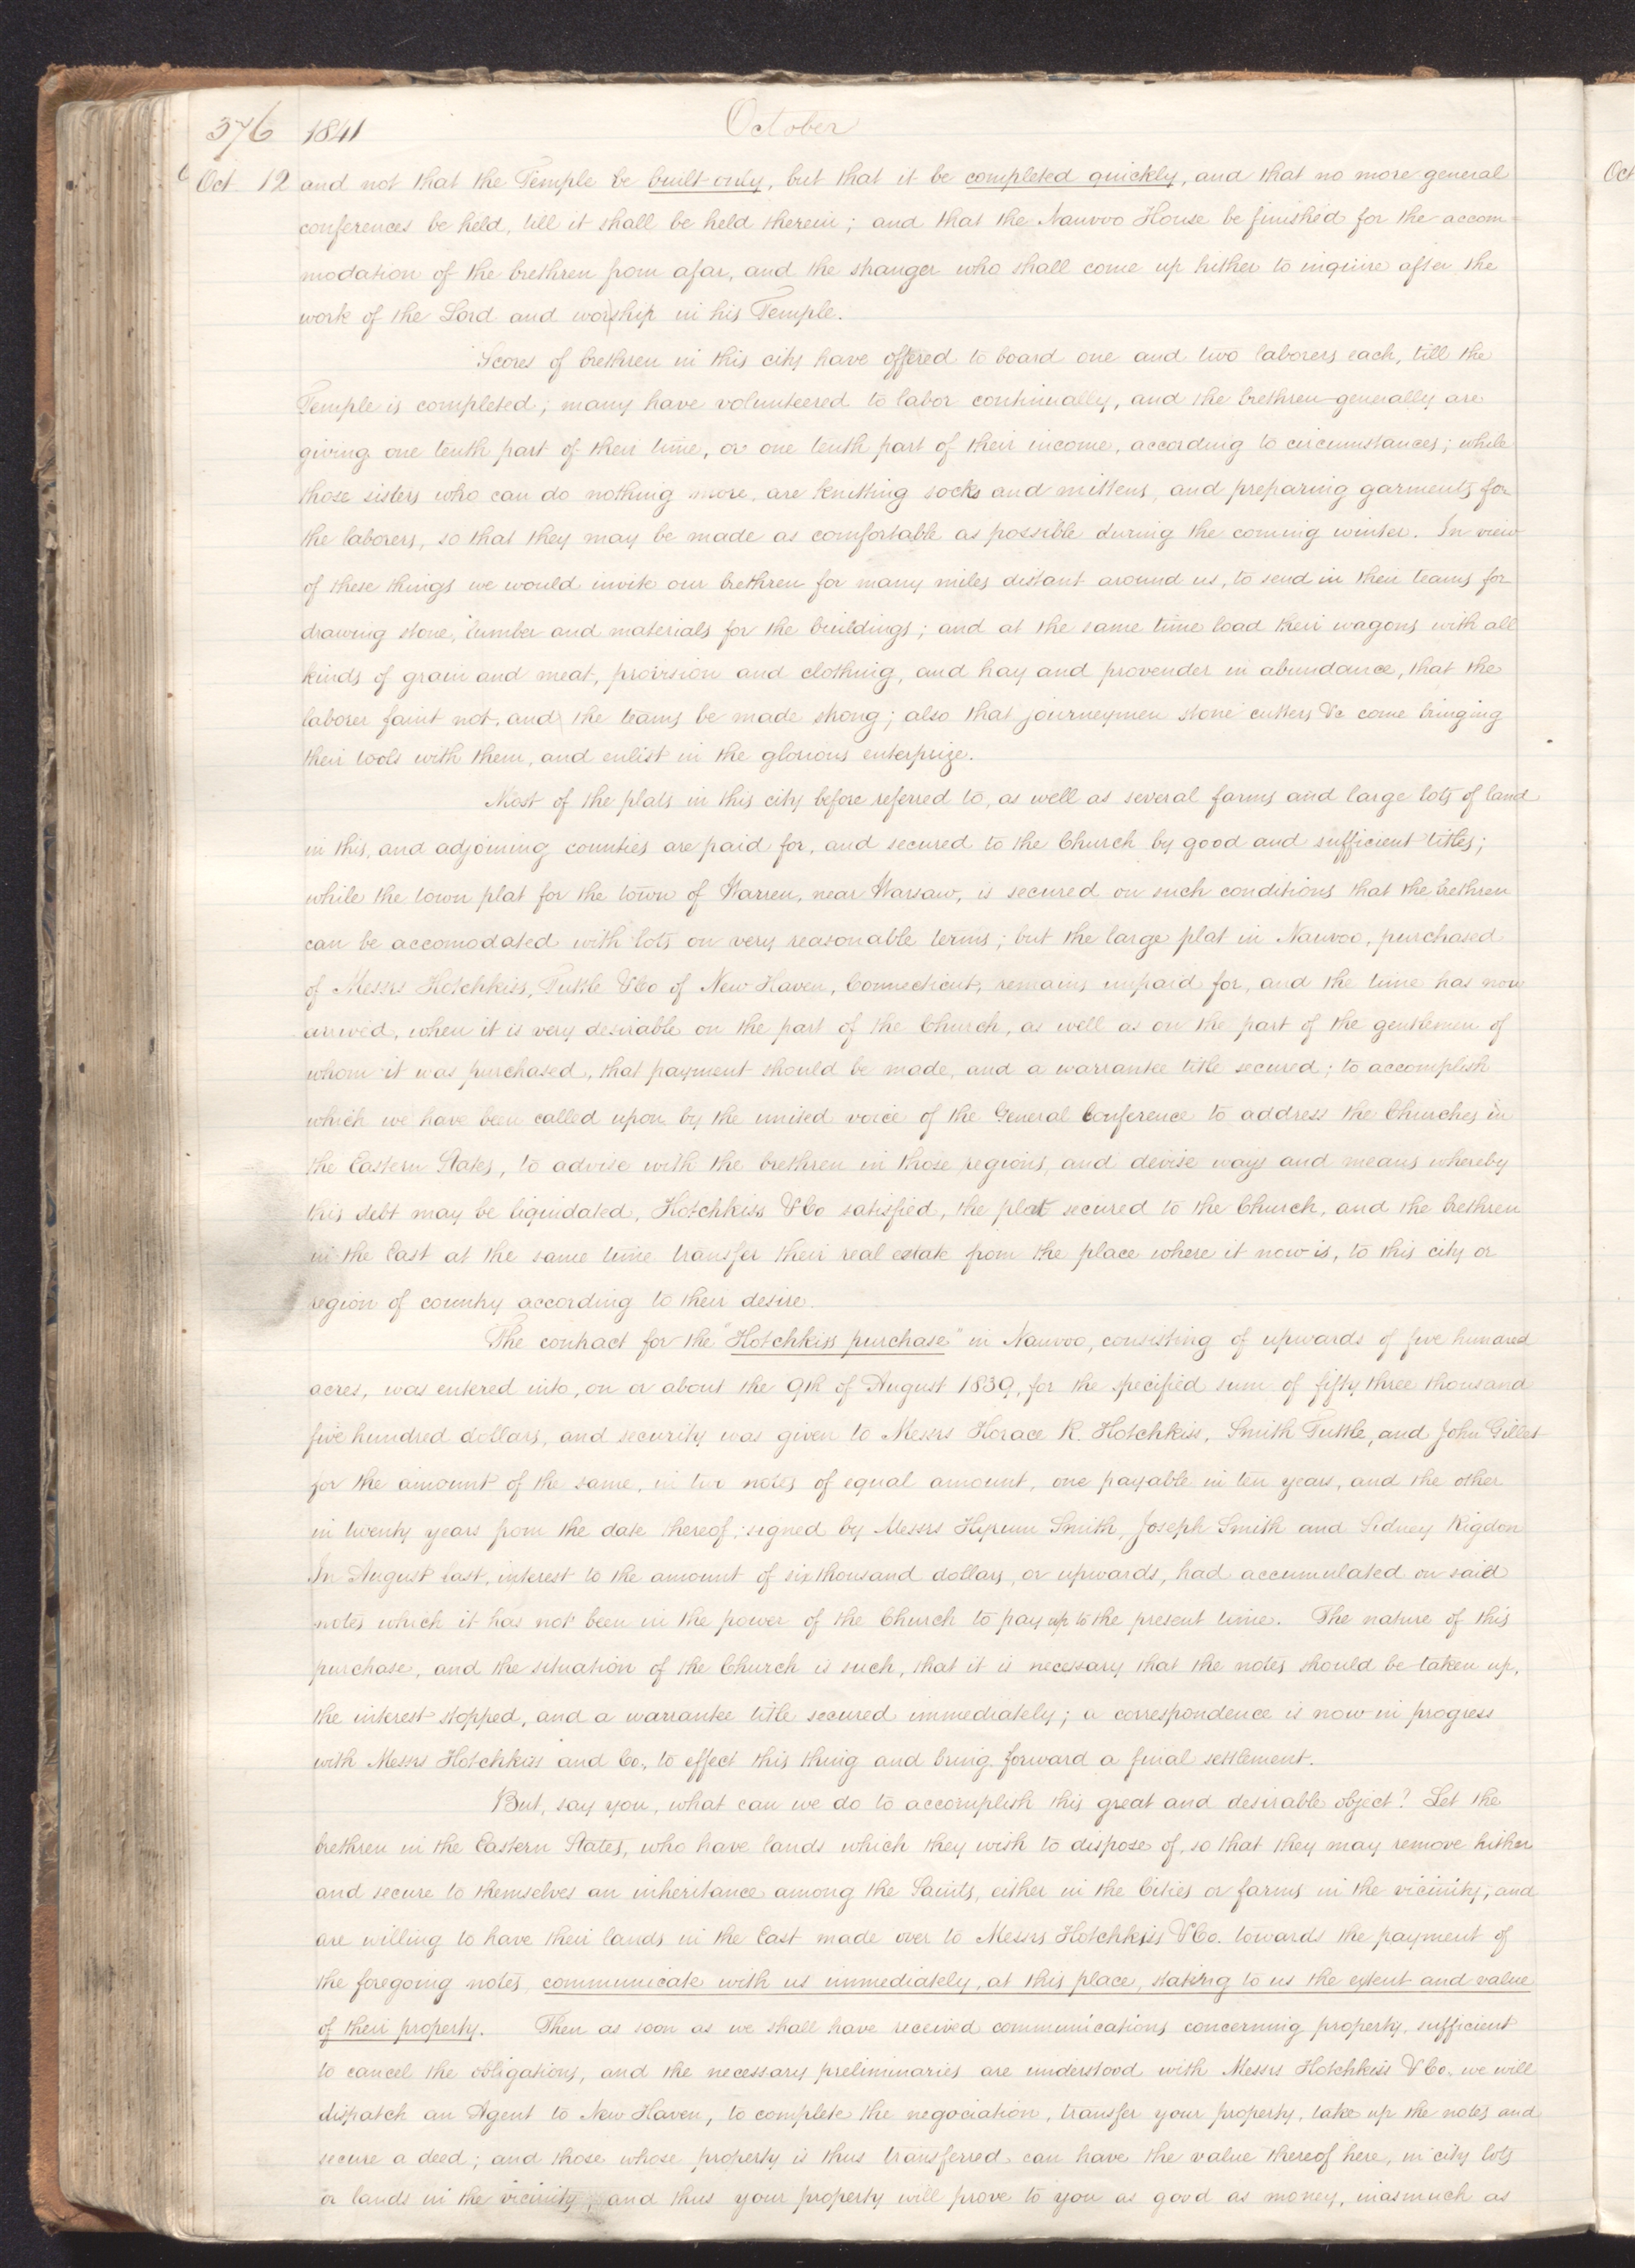 376 1841 October
6 Oct 12 and not that the Temple be built only, but that it be completed quickly, and that no more general
conferences be held, till it shall be held therein; and that the Nauvoo House be finished for the accom=
modation of the brethren from afar, and the stranger who shall come up hither to inquire after the
work of the Lord and worship in his Temple.
Scores of brethren in this city have offered to board one and two laborers each, till the
Temple is completed; many have volunteered to labor continually, and the brethren generally are
giving one tenth part of their time, or one tenth part of their income, according to circumstances; while
those sisters who can do nothing more, are knitting socks and mittens, and preparing garments for
the laborers, so that they may be made as comfortable as possible during the coming winter. In view
of these things we would invite our brethren for many miles distant around us, to send in their teams for
drawing stone, lumber and materials for the buildings; and at the same time load their wagons with all
kinds of grain and meat, provision and clothing, and hay and provender in abundance, that the
laborer faint not, and the teams be made strong; also that journeymen stone cutters &c come bringing
their tools with them, and enlist in the glorious enterprize.
Most of the plats in this city before referred to, as well as several farms and large lots of land
in this, and adjoining counties are paid for, and secured to the Church by good and sufficient titles;
while the town plat for the town of Warren, near Warsaw, is secured on such conditions that the brethren
can be accomodated with lots on very reasonable terms; but the large plat in Nauvoo, purchased
of Messrs Hotchkiss, Tuttle &Co of New Haven, Connecticut, remains unpaid for, and the time has now
arrived, when it is very desirable on the part of the Church, as well as on the part of the gentlemen of
whom it was purchased, that payment should be made, and a warrantee title secured; to accomplish
which we have been called upon by the united voice of the General Conference to address the Churches in
the Eastern States, to advise with the brethren in those regions, and devise ways and means whereby
this debt may be liquidated, Hotchkiss &Co satisfied, the plat secured to the Church, and the brethren
in the East at the same time transfer their real estate from the place where it now is, to this city or
region of country according to their desire.
The contract for the "Hotchkiss purchase" in Nauvoo, consisting of upwards of five hundred
acres, was entered into, on or about the 9th of August 1839, for the specified sum of fifty three thousand
five hundred dollars, and security was given to Messrs Horace R. Hotchkiss, Smith Tuttle, and John Gillet
for the amount of the same, in two notes of equal amount, one payable in ten years, and the other
in twenty years from the date thereof; signed by Messrs Hyrum Smith, Joseph Smith and Sidney Rigdon
In August last, interest to the amount of six thousand dollars, or upwards, had accumulated on said
notes which it has not been in the power of the Church to pay up to the present time. The nature of this
purchase, and the situation of the Church is such, that it is necessary that the notes should be taken up,
the interest stopped, and a warrantee title secured immediately; a correspondence is now in progress
with Messrs Hotchkiss and Co., to effect this thing and bring forward a final settlement.
But, say you, what can we do to accomplish this great and desirable object? Let the
brethren in the Eastern States, who have lands which they wish to dispose of, so that they may remove hither
and secure to themselves an inheritance among the Saints, either in the Cities or farms in the vicinity, and
are willing to have their lands in the East made over to Messrs Hotchkiss &Co. towards the payment of
the foregoing notes, communicate with us immediately, at this place, stating to us the extent and value
of their property. Then as soon as we shall have received communications concerning property, sufficient
to cancel the obligations, and the necessary preliminaries are understood with Messrs Hotchkiss &Co. we will
dispatch an Agent to New Haven, to complete the negociation, transfer your property, take up the notes and
secure a deed; and those whose property is thus transferred can have the value thereof here, in city lots
or lands in the vicinity, and thus your property will prove to you as good as money, inasmuch as
Oct